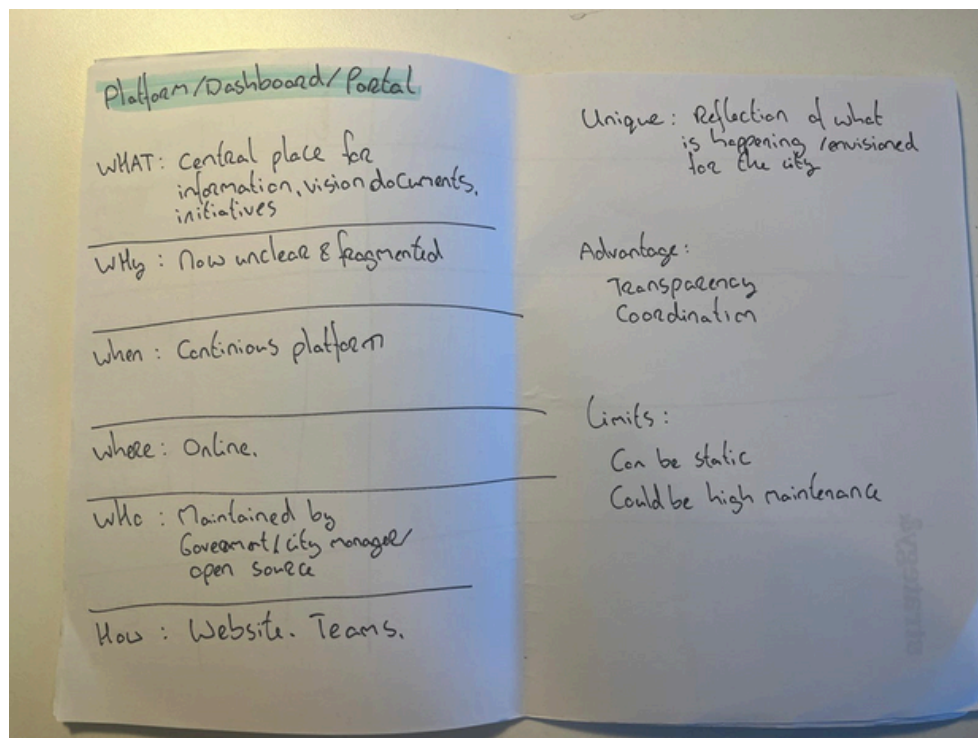 Platform/Dashboard/Portal
WHAT: Central place for
information, vision documents,
initiatives
WHy: Now unclear & fragmented
when: Continious platform
where: Online.
WHo: Maintained by
Goverment/city manager/
open source
How: Website. Teams.
Unique: Reflection of what
is happening/envisioned
for the city
Advantage:
Transparency
Coordination
Limits:
Can be static
Could be high maintenance